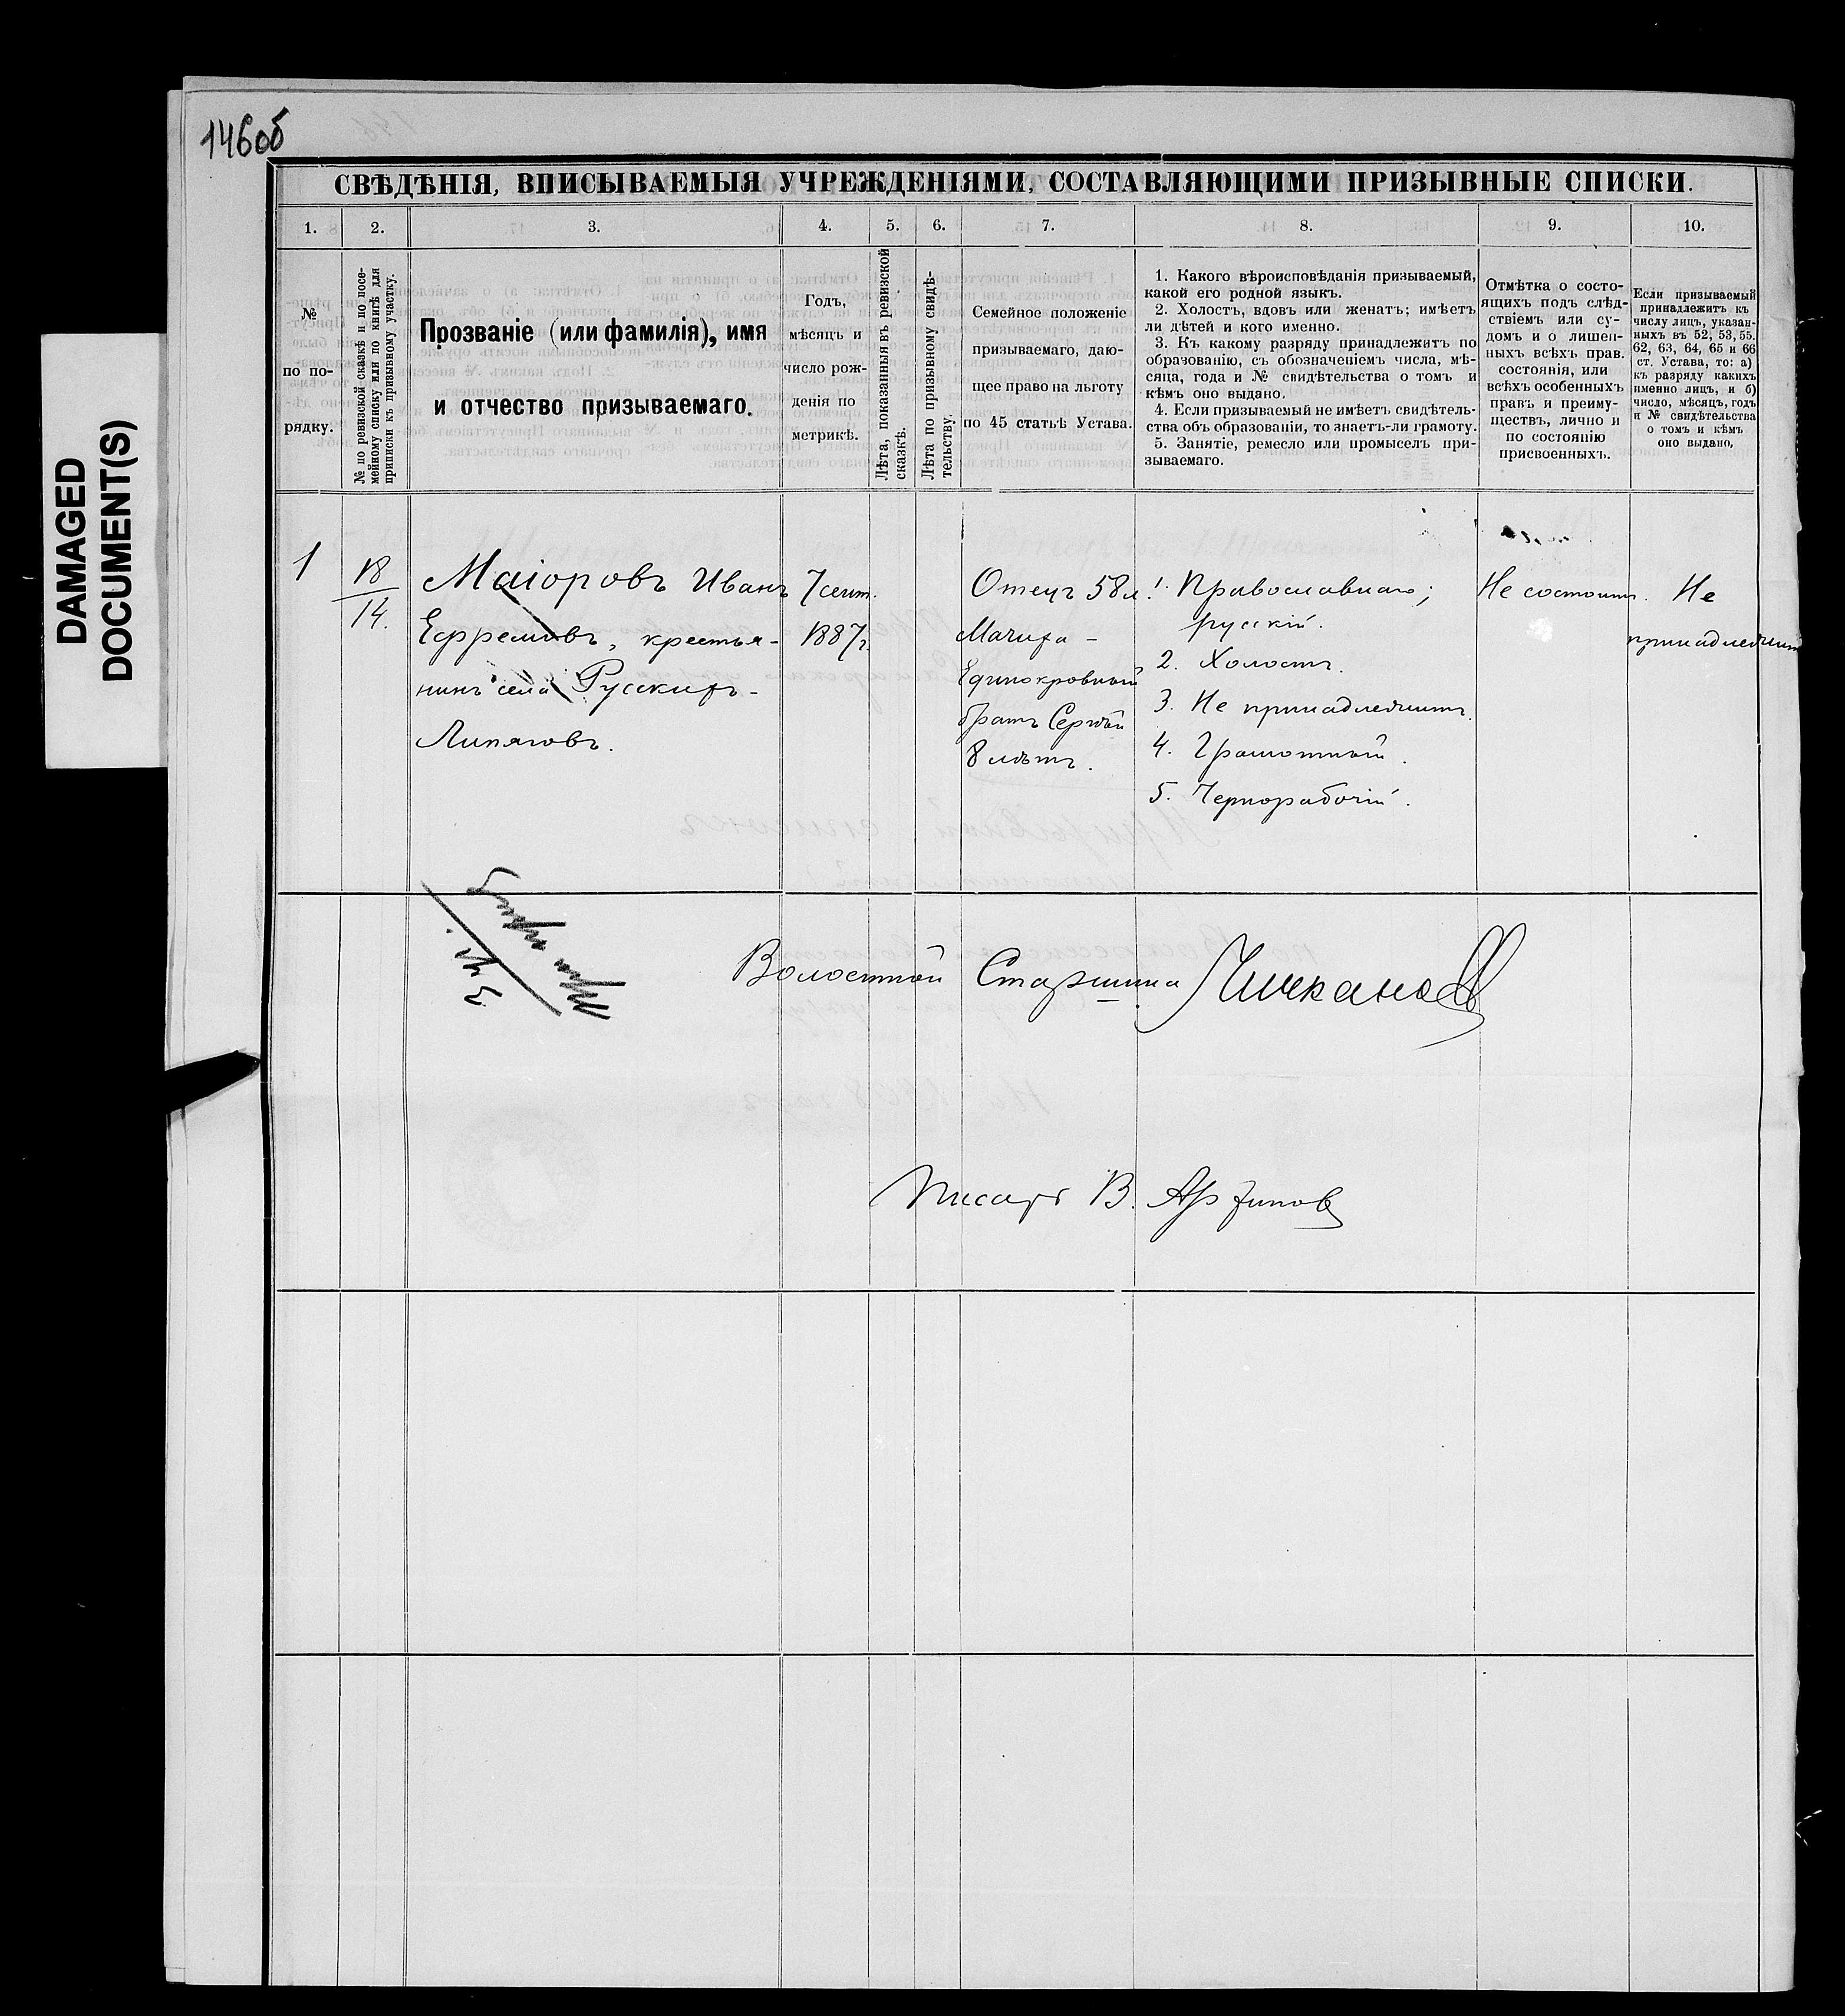 146об
DAMAGED
DOCUMENT(S)
СВѢДѢНІЯ, ВПИСЫВАЕМЫЯ УЧРЕЖДЕНІЯМИ, СОСТАВЛЯЮЩИМИ ПРИЗЫВНЫЕ СПИСКИ.
1. 2. 3. 4. 5. 6. 7. 8. 9. 10.
№
по по-
рядку.
№ по ревизской сказкѣ и по посе-
мейному списку или по книгѣ для
приписки къ призывному участку.
Прозваніе (или фамилія), имя
и отчество призываемаго.
Годъ,
мѣсяцъ и
число рож-
денія по
метрикѣ.
Лѣта, показанныя въ ревизской
сказкѣ.
Лѣта по призывному свидѣ-
тельству.
Семейное положеніе
призываемаго, даю-
щее право на льготу
по 45 статьѣ Устава.
1. Какого вѣроисповѣданія призываемый,
какой его родной языкъ.
2. Холостъ, вдовъ или женатъ; имѣетъ
ли дѣтей и кого именно.
3. Къ какому разряду принадлежитъ по
образованію, съ обозначеніемъ числа, мѣ-
сяца, года и № свидѣтельства о томъ и
кѣмъ оно выдано.
4. Если призываемый не имѣетъ свидѣтель-
ства объ образованіи, то знаетъ-ли грамоту.
5. Занятіе, ремесло или промыселъ при-
зываемаго.
Отмѣтка о состо-
ящихъ подъ слѣд-
ствіемъ или су-
домъ и о лишен-
ныхъ всѣхъ прав.
состоянія, или
всѣхъ особенныхъ
правъ и преиму-
ществъ, лично и
по состоянію
присвоенныхъ.
Если призываемый
принадлежитъ къ
числу лицъ, указан-
ныхъ въ 52, 53, 55.
62, 63, 64, 65 и 66
ст. Устава, то: а)
къ разряду какихъ
именно лицъ, и б)
число, мѣсяцъ, годъ
и № свидѣтельства
о томъ и кѣмъ
оно выдано,
1
18
14.
Маіоровъ Иванъ
Ефремовъ, крестья-
нинъ села Русскихъ-
Липяговъ.
7 сент.
1887г.
Отецъ 58л
Мачиха -
Единокровный
братъ Сергѣй
8 лѣтъ.
1. Православнаго;
русскій.
2. Холостъ.
3. Не принадлежитъ.
4. Грамотный.
5. Чернорабочій.
Не состоитъ.
Не
принадлежитъ
Волостной Старшина Чичканов
Писарь В. Архипов